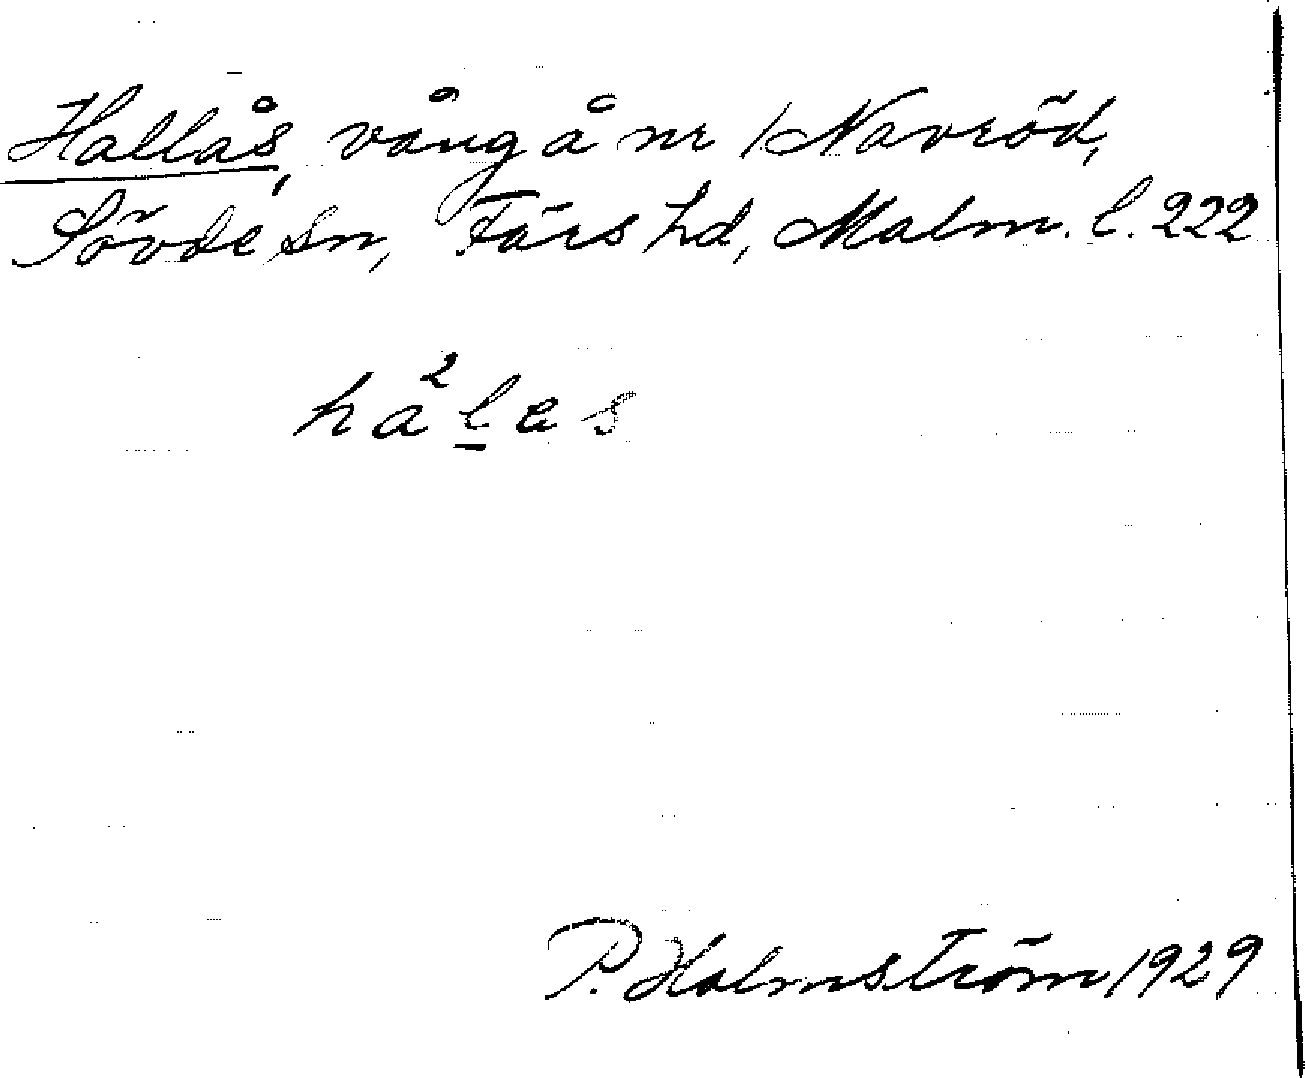 Hallås, vång å nr 1 Navröd,
Sövde sn, Färs hd, Malm. l. 222
ha²les
P. Holmström 1929